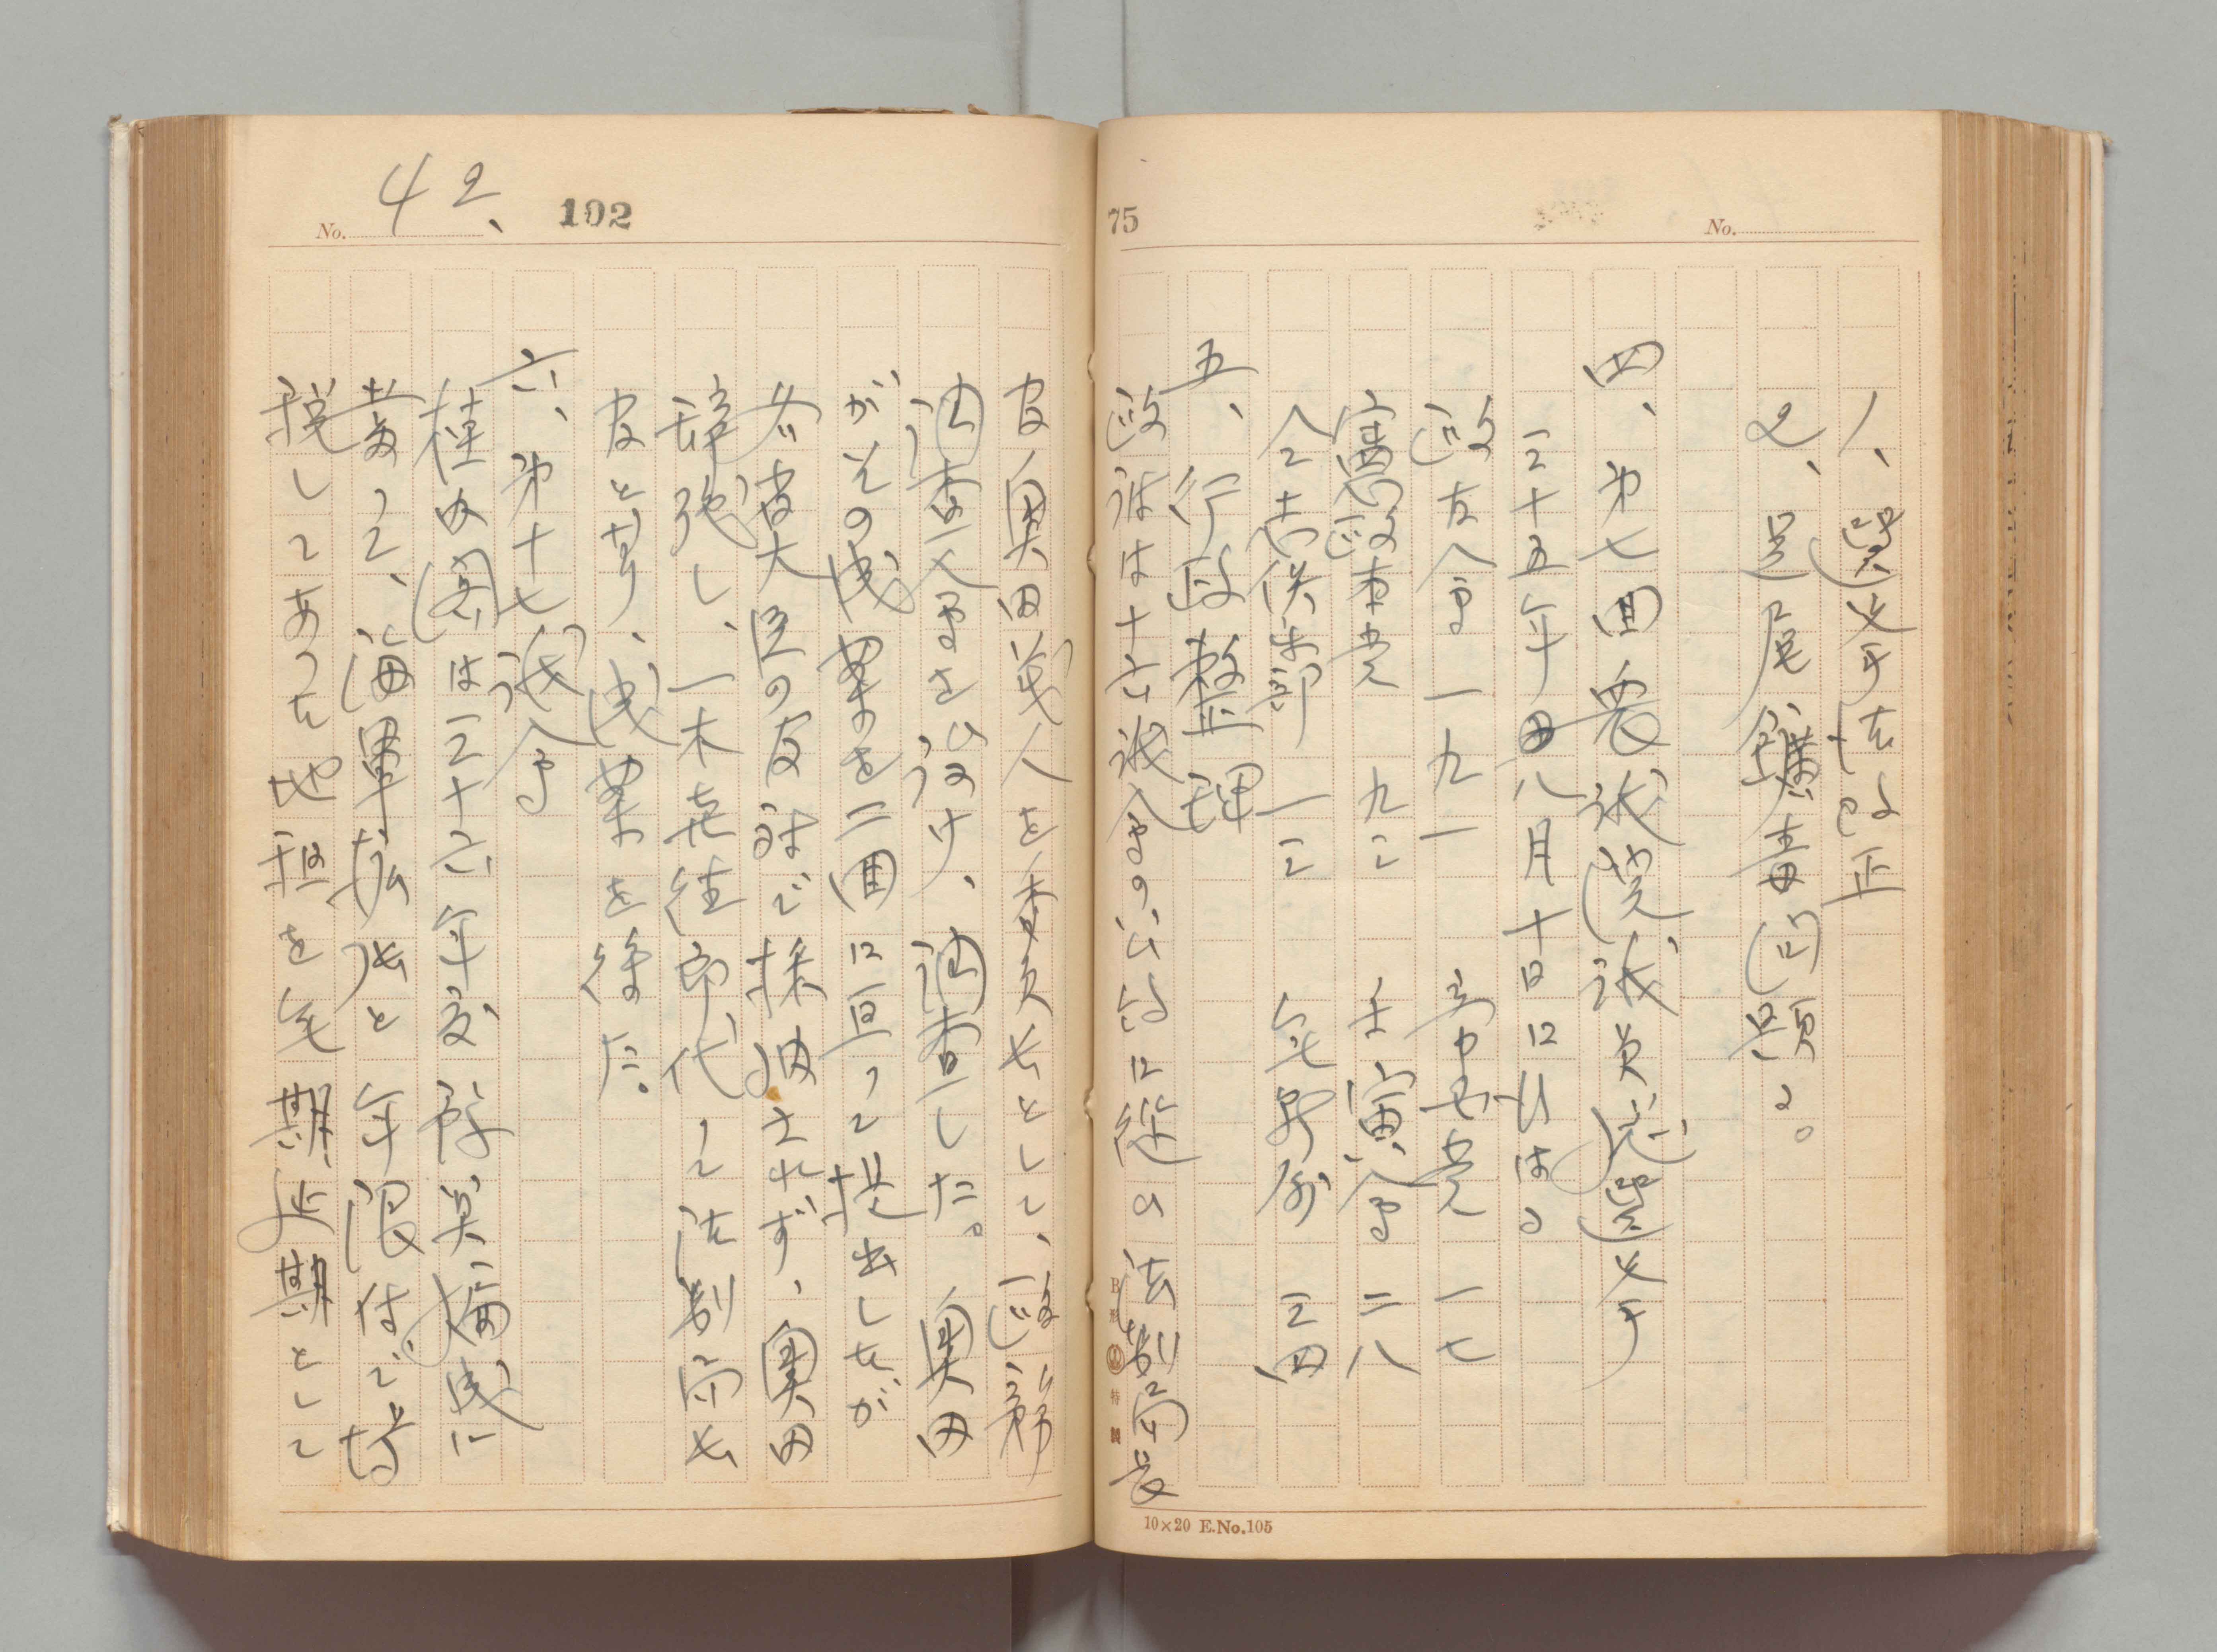 75
No.
1、選挙法改正
2、足尾鑛毒問題。
四、第七回衆議院議員総選挙
三十五年八月十日に行はる
政友会 一九一 帝国党 一七
憲政本党 九二 壬寅会 二八
同志倶楽部 一三 無所属 三四
五、行政整理
政府は十六議会の公約に従ひ法制局長
10×20 E.No.105
No. 42、 102
官奥田義人を委員長として、政務
調査会を設け、調査した。奥田
がその成案を二回に亘って提出したが
各省大臣の反対で採用されず、奥田
辞職し、一木喜徳郎代って法制局長
官と為り、成案を得た。
六、第十七議会
桂内閣は三十六年度予算編成に
當って、海軍拡張と年限付で増
税してあった地租を無期延期として